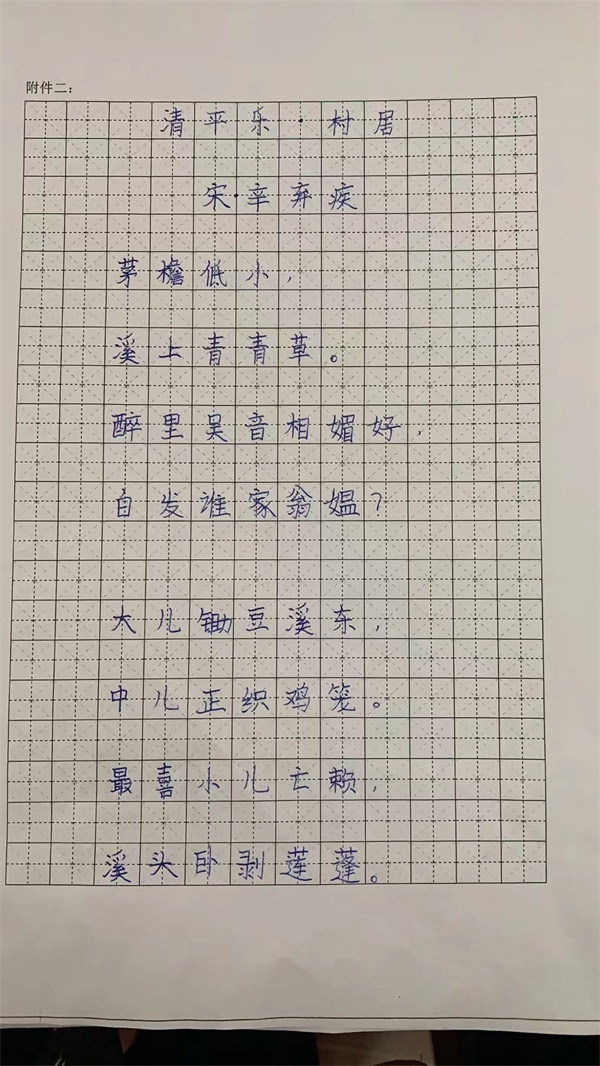 附件二：
清平乐·村居
宋·辛弃疾
茅檐低小，
溪上青青草。
醉里吴音相媚好，
自发谁家翁媪？
大儿锄豆溪东，
中儿正织鸡笼。
最喜小儿亡赖，
溪头卧剥莲蓬。